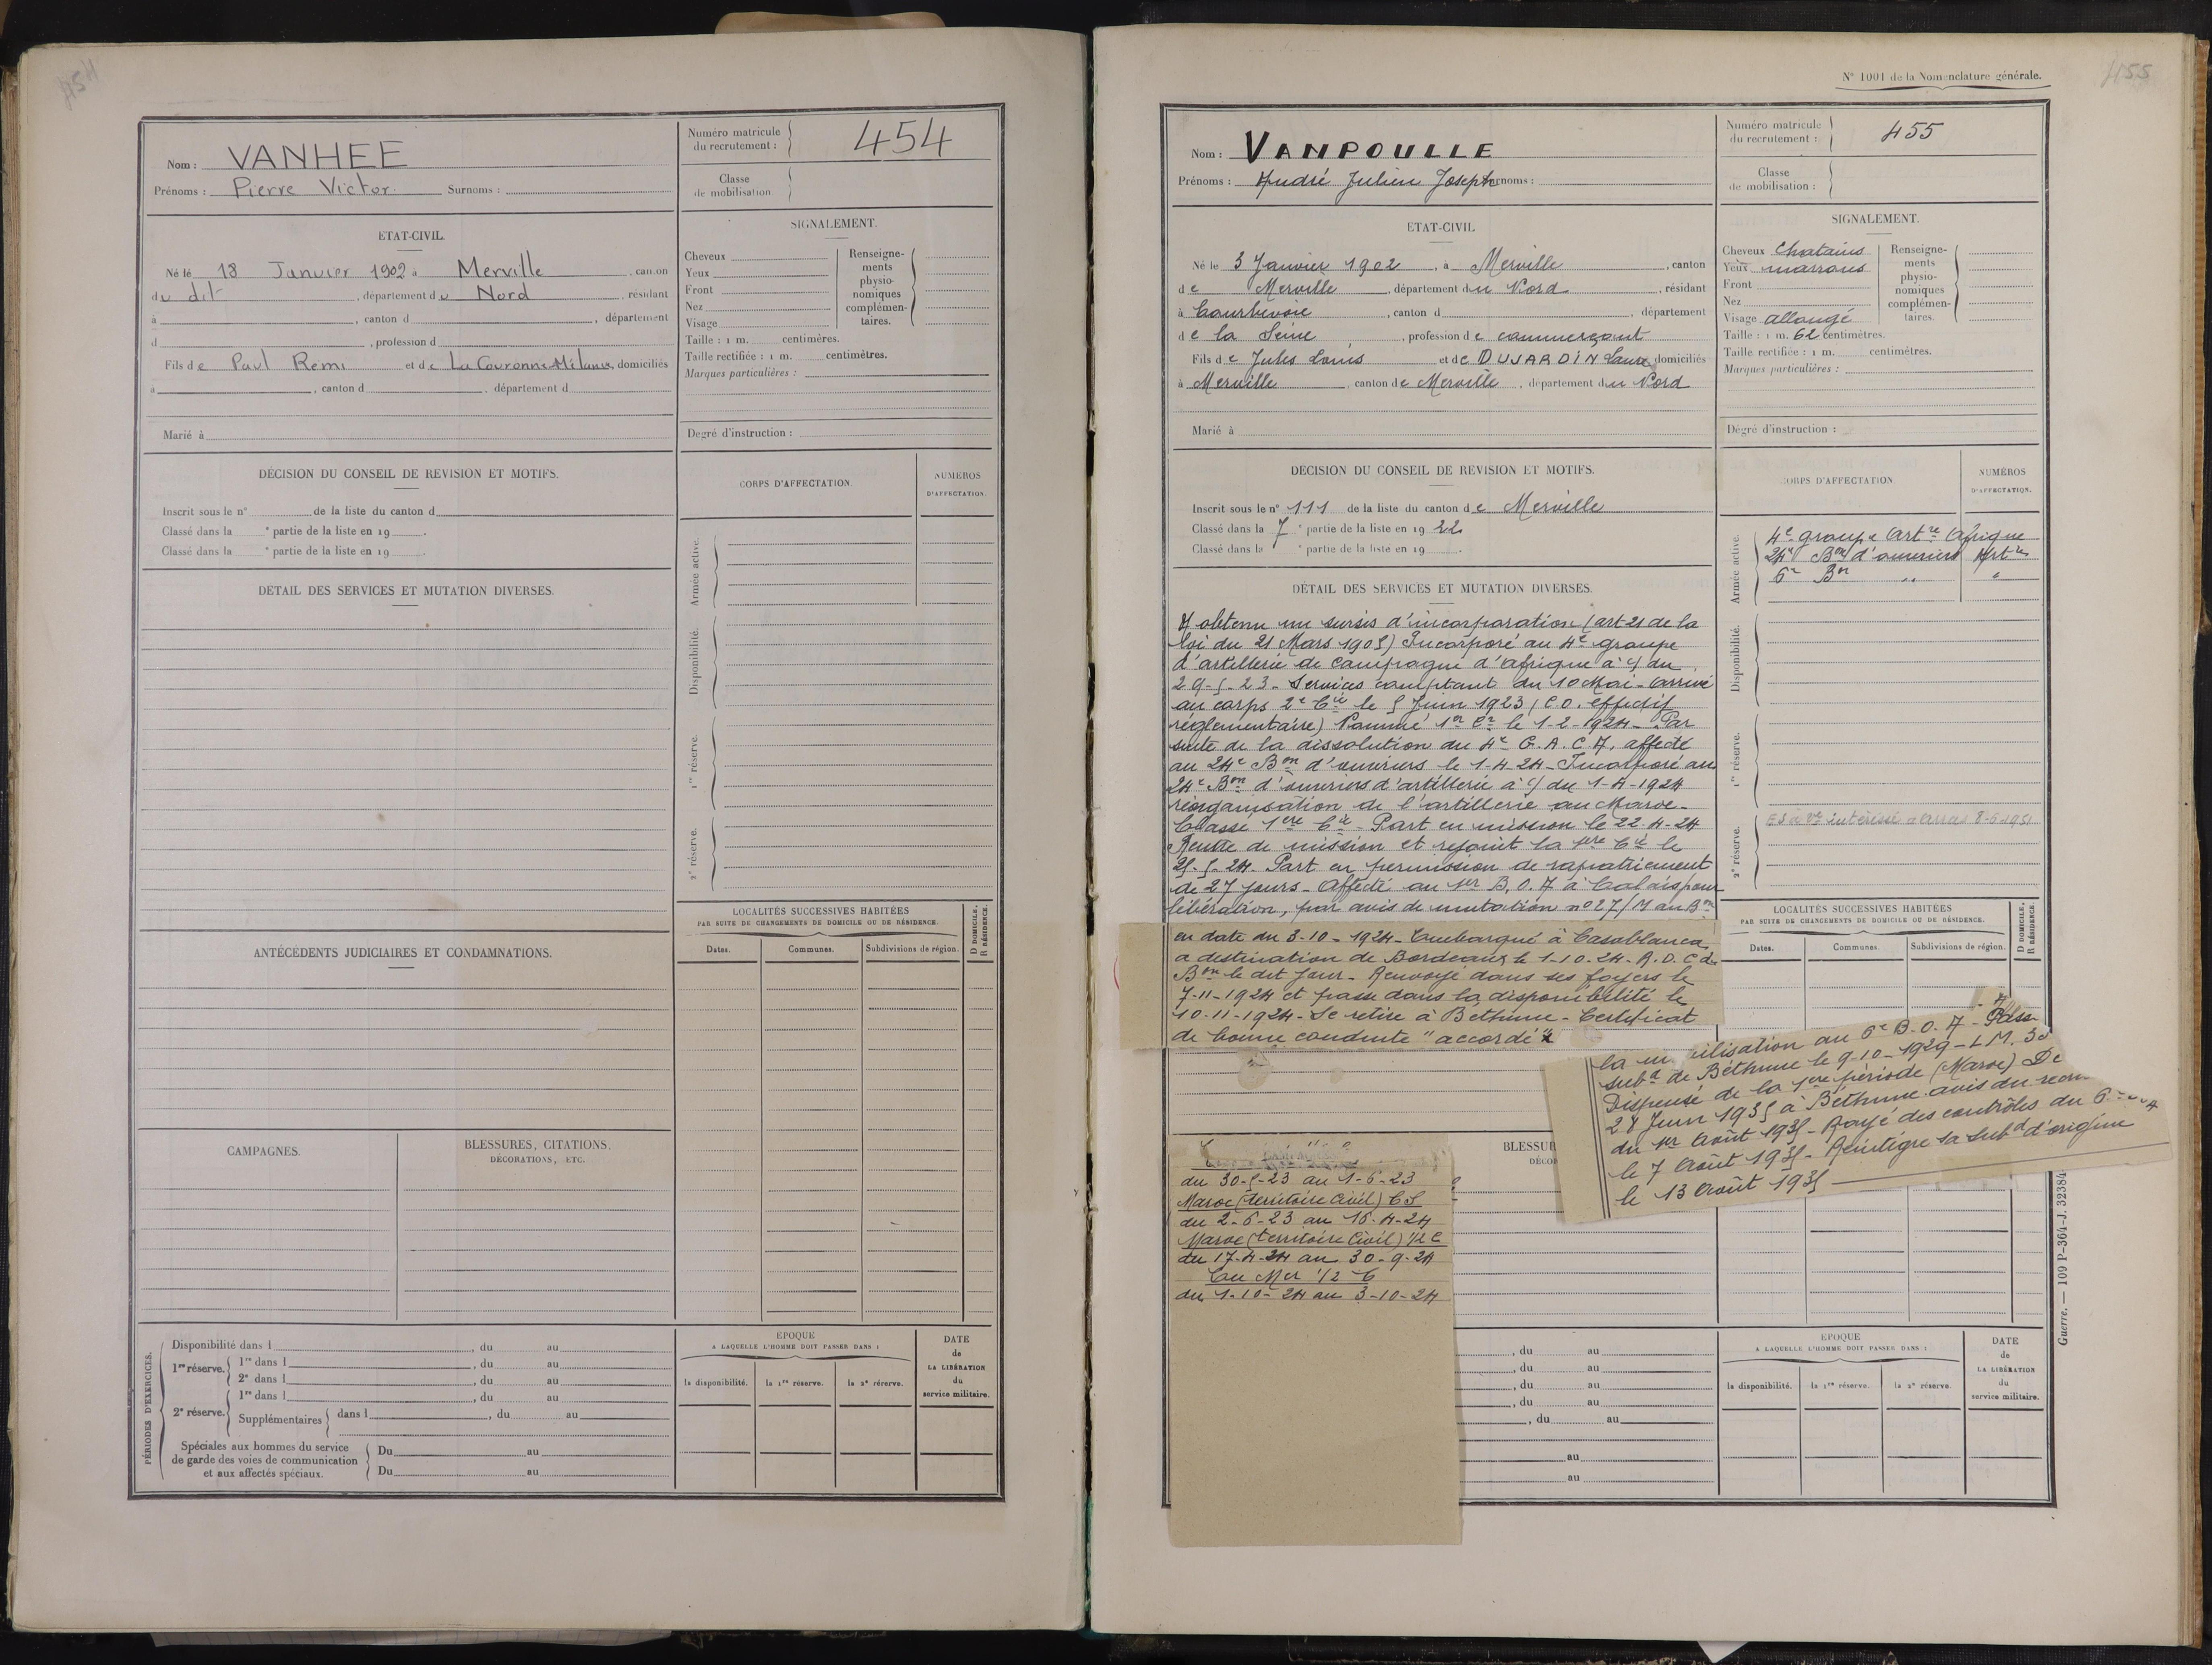 454
Nom : VANHEE
Prénoms : Pierre Victor Surnoms :
Numéro matricule du recrutement : 454
Classe de mobilisation
ETAT-CIVIL.
Né le 18 Janvier 1902 à Merville, canton
du dit, département du Nord, résidant
à, canton d, département
d, profession d
Fils de Paul Remi et de La Couronne Mélanie, domiciliés
à, canton d, département d
Marié à
SIGNALEMENT.
Cheveux
Yeux
Front
Nez
Visage
Renseignements physionomiques complémentaires.
Taille : 1 m. centimères.
Taille rectifiée : 1 m. centimètres.
Marques particulières :
Degré d'instruction :
DÉCISION DU CONSEIL DE REVISION ET MOTIFS.
Inscrit sous le n° de la liste du canton d
Classé dans la e partie de la liste en 19 .
Classé dans la e partie de la liste en 19 .
DÉTAIL DES SERVICES ET MUTATION DIVERSES.
CORPS D'AFFECTATION.
NUMÉROS D'AFFECTATION.
Armée active.
Disponibilité.
1re réserve.
2e réserve.
ANTÉCÉDENTS JUDICIAIRES ET CONDAMNATIONS.
LOCALITÉS SUCCESSIVES HABITÉES
PAR SUITE DE CHANGEMENTS DE DOMICILE OU DE RÉSIDENCE.
D DOMICILE. R RÉSIDENCE.
Dates. Communes. Subdivisions de région.
CAMPAGNES.
BLESSURES, CITATIONS,
DÉCORATIONS, ETC.
PÉRIODES D'EXERCICES.
Disponibilité dans l, du au
1re réserve. 1re dans l, du au
2e dans l, du au
2e réserve. 1re dans l, du au
Supplémentaires dans l, du au
Spéciales aux hommes du service
de garde des voies de communication
et aux affectés spéciaux.
Du au
Du au
ÉPOQUE
A LAQUELLE L'HOMME DOIT PASSER DANS :
la disponibilité. la 1re réserve. la 2e réserve.
DATE de LA LIBÉRATION du service militaire.
N° 1001 de la Nomenclature générale.
455
Nom : VANPOULLE
Prénoms : André Julien Joseph Surnoms :
Numéro matricule du recrutement : 455
Classe de mobilisation :
ETAT-CIVIL
Né le 3 Janvier 1902, à Merville, canton
de Merville, département du Nord, résidant
à Courbevoie, canton d, département
de la Seine, profession de commerçant
Fils de Jules Louis et de DUJARDIN Laure, domiciliés
à Merville, canton de Merville, département du Nord
Marié à
SIGNALEMENT.
Cheveux Chatains
Yeux marrons
Front
Nez
Visage allongé
Renseignements physionomiques complémentaires.
Taille : 1 m. 62 centimètres.
Taille rectifiée : 1 m. centimètres.
Marques particulières :
Dégré d'instruction :
DÉCISION DU CONSEIL DE REVISION ET MOTIFS.
Inscrit sous le n° 111 de la liste du canton de Merville
Classé dans la 7e partie de la liste en 1922
Classé dans la e partie de la liste en 19 .
CORPS D'AFFECTATION
NUMÉROS D'AFFECTATION.
Armée active.
4e groupe Artre Afrique
24e Bon d'ouvriers Artre
6e Bon " "
Disponibilité.
1re réserve.
2e réserve.
intéressé à Arras 8-6-1951
DÉTAIL DES SERVICES ET MUTATION DIVERSES.
A obtenu un sursis d'incorporation (art 21 de la
loi du 21 Mars 1905) Incorporé au 4e groupe
d'artillerie de campagne d'Afrique à c/ du
29-5-23 - Services comptant du 10 Mai - Arrivé
au corps 2e Cie le 5 Juin 1923 (C.O. effectif
réglementaire) Nommé 1er Cr le 1-2-1924 - Par
suite de la dissolution du 4e G.A.C.A. affecté
au 24e Bon d'ouvriers le 1-4-24 - Incorporé au
24e Bon d'ouvriers d'artillerie à c/ du 1-4-1924
réorganisation de l'artillerie au Maroc -
Classé 1ere Cie - Part en mission le 22-4-24
Rentre de mission et rejoint la 1ere Cie le
25-5-24. Part en permission de rapatriement
de 27 jours - Affecté au 1er B.O.A à Calais pour
libération, par avis de mutation n° 27/M au Bon
en date du 3-10-1924 - Embarqué à Casablanca
a destination de Bordeaux le 1-10-24 - R.D.C du
Bon le dit jour - Renvoyé dans ses foyers le
7-11-1924 et passe dans la disponibilité le
10-11-1924 - Se retire à Béthune - Certificat
de bonne conduite "accordé"
LOCALITÉS SUCCESSIVES HABITÉES
PAR SUITE DE CHANGEMENTS DE DOMICILE OU DE RÉSIDENCE.
D DOMICILE. R RÉSIDENCE.
Dates. Communes. Subdivisions de région.
la ilisation au 6e B.O.A - Passé
subd de Béthune le 9-10-1929 - L M.
Dispensé de la 1ere période (Maroc) De
28 Juin 1935 à Béthune avis du
du 1er Août 1935 - Rayé des contrôles du 6e
le 7 Août 1935 - Réintègre sa subd d'origine
le 13 Août 1935
du 30-5-23 au 1-6-23
Maroc (territoire Civil) CS
du 2-6-23 au 16-4-24
Maroc (territoire Civil) 1/2 C
du 17-4-24 au 30-9-24
En Mer 1/2 C
du 1-10-24 au 3-10-24
BLESSUR
DÉCOR
, du au
, du au
, du au
, du au
, du au
au
au
ÉPOQUE
A LAQUELLE L'HOMME DOIT PASSER DANS :
la disponibilité. la 1re réserve. la 2e réserve.
DATE de LA LIBÉRATION du service militaire.
Guerre. — 109 P-364-J. 32384